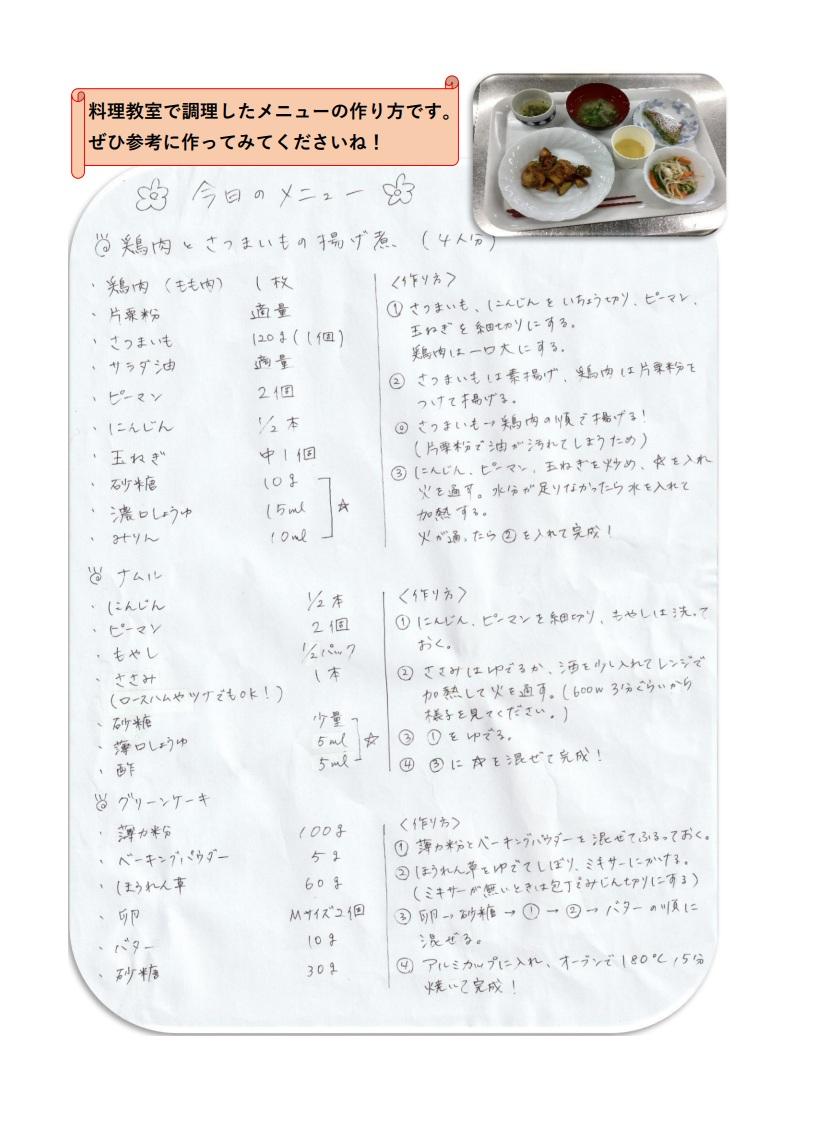 料理教室で調理したメニューの作り方です。
ぜひ参考に作ってみてくださいね！
今日のメニュー
鶏肉とさつまいもの揚げ煮（4人分）
・鶏肉（もも肉） 1枚
・片栗粉 適量
・さつまいも 120g(1個)
・サラダ油 適量
・ピーマン 2個
・にんじん 1/2本
・玉ねぎ 中1個
・砂糖 10g
・濃口しょうゆ 15ml ☆
・みりん 10ml
〈作り方〉
① さつまいも、にんじんをいちょう切り、ピーマン、
玉ねぎを細切りにする。
鶏肉は一口大にする。
② さつまいもは素揚げ、鶏肉は片栗粉を
つけて揚げる。
◎ さつまいも→鶏肉の順で揚げる！
(片栗粉で油が汚れてしまうため)
③ にんじん、ピーマン、玉ねぎを炒め、☆を入れ
火を通す。水分が足りなかったら水を入れて
加熱する。
火が通ったら②を入れて完成！
ナムル
・にんじん 1/2本
・ピーマン 2個
・もやし 1/2パック
・ささみ 1本
(ロースハムやツナでもOK！)
・砂糖 少量
・薄口しょうゆ 5ml ☆
・酢 5ml
〈作り方〉
① にんじん、ピーマンを細切り、もやしは洗って
おく。
② ささみはゆでるか、酒を少し入れてレンジで
加熱して火を通す。(600W 3分ぐらいから
様子を見てください。)
③ ①をゆでる。
④ ③に☆を混ぜて完成！
グリーンケーキ
・薄力粉 100g
・ベーキングパウダー 5g
・ほうれん草 60g
・卵 Mサイズ2個
・バター 10g
・砂糖 30g
〈作り方〉
① 薄力粉とベーキングパウダーを混ぜてふるっておく。
② ほうれん草をゆでてしぼり、ミキサーにかける。
(ミキサーが無いときは包丁でみじん切りにする)
③ 卵→砂糖→①→②→バターの順に
混ぜる。
④ アルミカップに入れ、オーブンで180℃15分
焼いて完成！